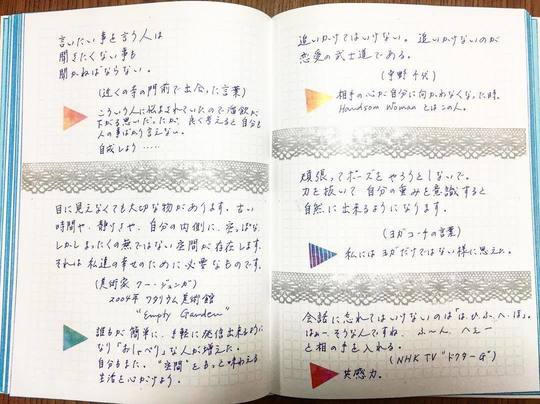 言いたい事を言う人は
聞きたくない事も
聞かねばならない。
(近くの寺の門前で出会った言葉)
こういう人に悩まされていたので溜飲が
下がる思いだ。だが、良く考えると自分も
人の事ばかり言えない。
自戒しよう……
目に見えなくても大切な物があります。古い
時間や、静けさや、自分の内側に、空っぽな、
しかしまったくの無ではない空間が存在します。
それは私達の幸せのために必要なものです。
(美術家 フー・ジュンガ)
2004年 ワタリウム美術館
"Empty Garden"
誰もが簡単に、手軽に発信出来るように
なり「おしゃべり」な人が増えた。
自分もまた。"空間"をもっと味わえる
生活を心がけよう。
追いかけてはいけない。追いかけないのが
恋愛の武士道である。
(宇野千代)
相手の心が自分に向かわなくなった時。
Handsom Womanとはこの人。
頑張ってポーズをやろうとしないで。
力を抜いて自分の重みを意識すると
自然に出来るようになります。
(ヨガコーチの言葉)
私にはヨガだけではない様に思えた。
会話に忘れてはいけないのは「は、ひ、ふ、へ、ほ」。
はぁーそうなんですね、ふ〜ん、へぇー
と相の手を入れる。
(NHK TV "ドクターG")
共感力。